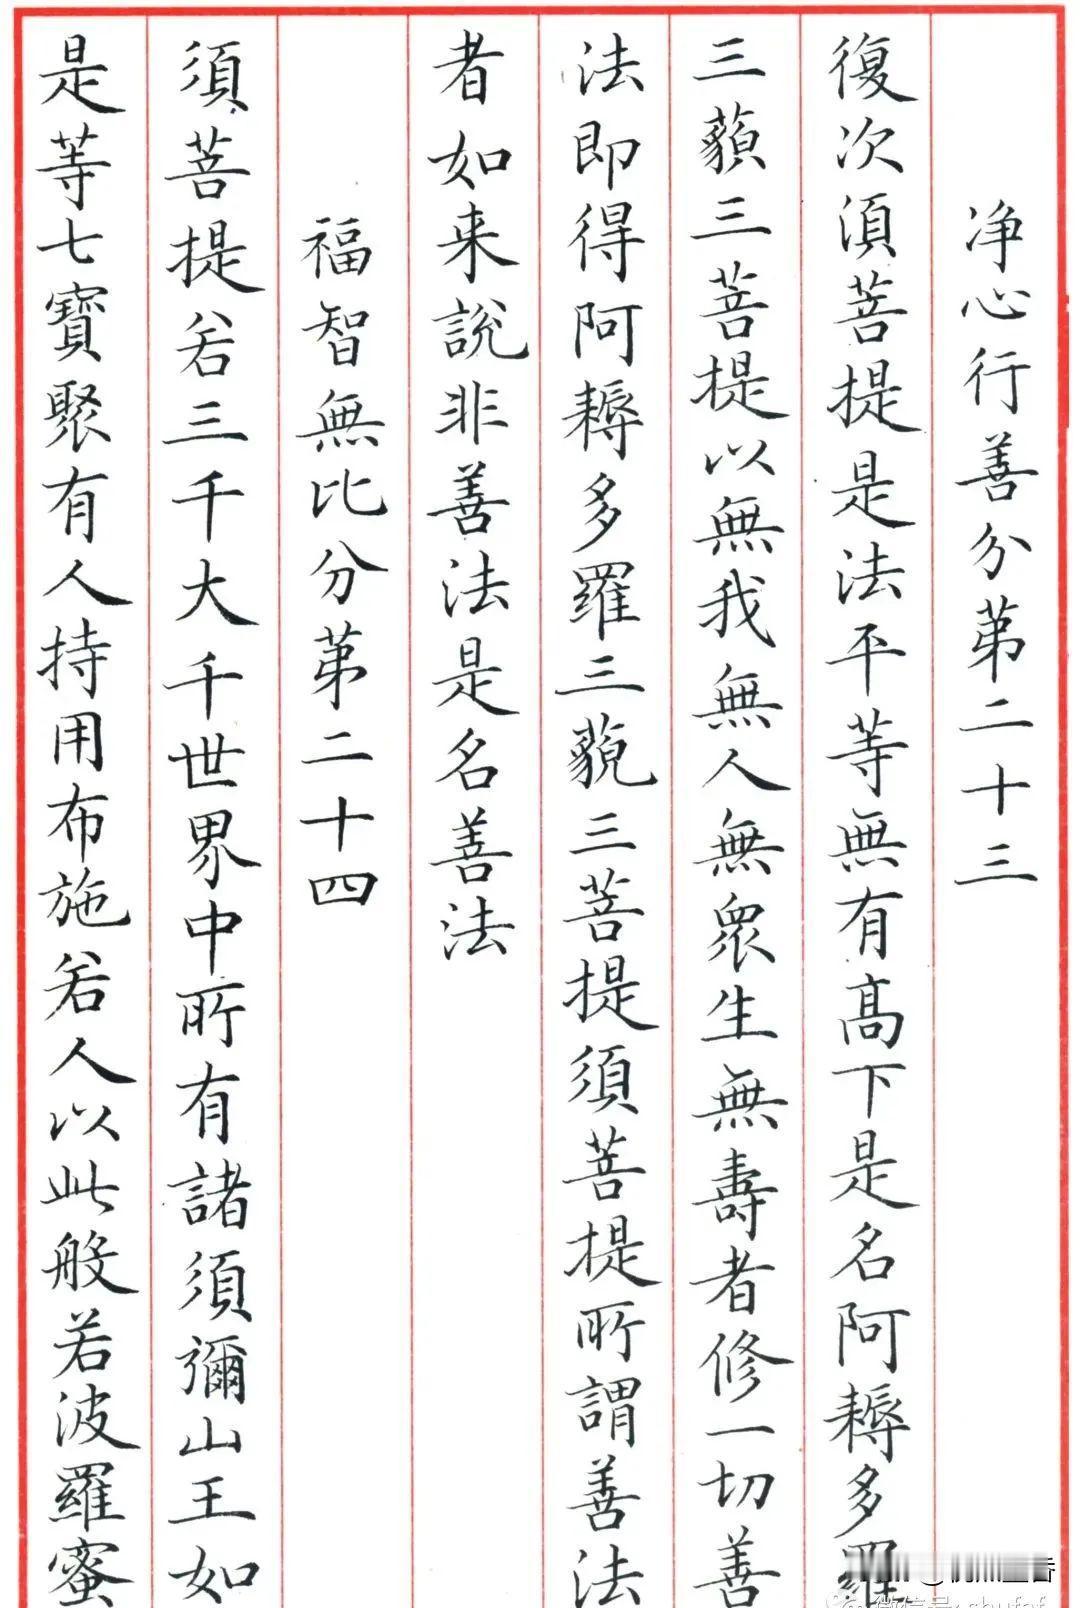 净心行善分第二十三
復次須菩提是法平等無有高下是名阿耨多羅
三藐三菩提以無我無人無眾生無壽者修一切善
法即得阿耨多羅三藐三菩提須菩提所謂善法
者如来說非善法是名善法
福智無比分第二十四
須菩提若三千大千世界中所有諸須彌山王如
是等七寶聚有人持用布施若人以此般若波羅蜜